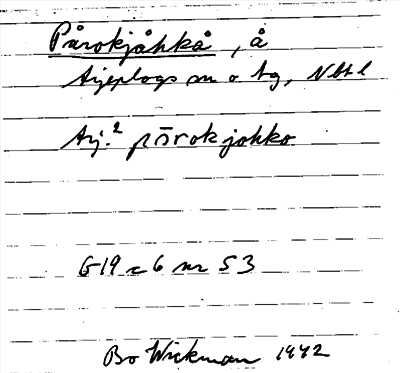 Pårokjåhkå, å
Arjeplogs sn o tg, Nbt l
Arj.² pārokjohko
G19 c 6 nr 53
Bo Wickman 1942